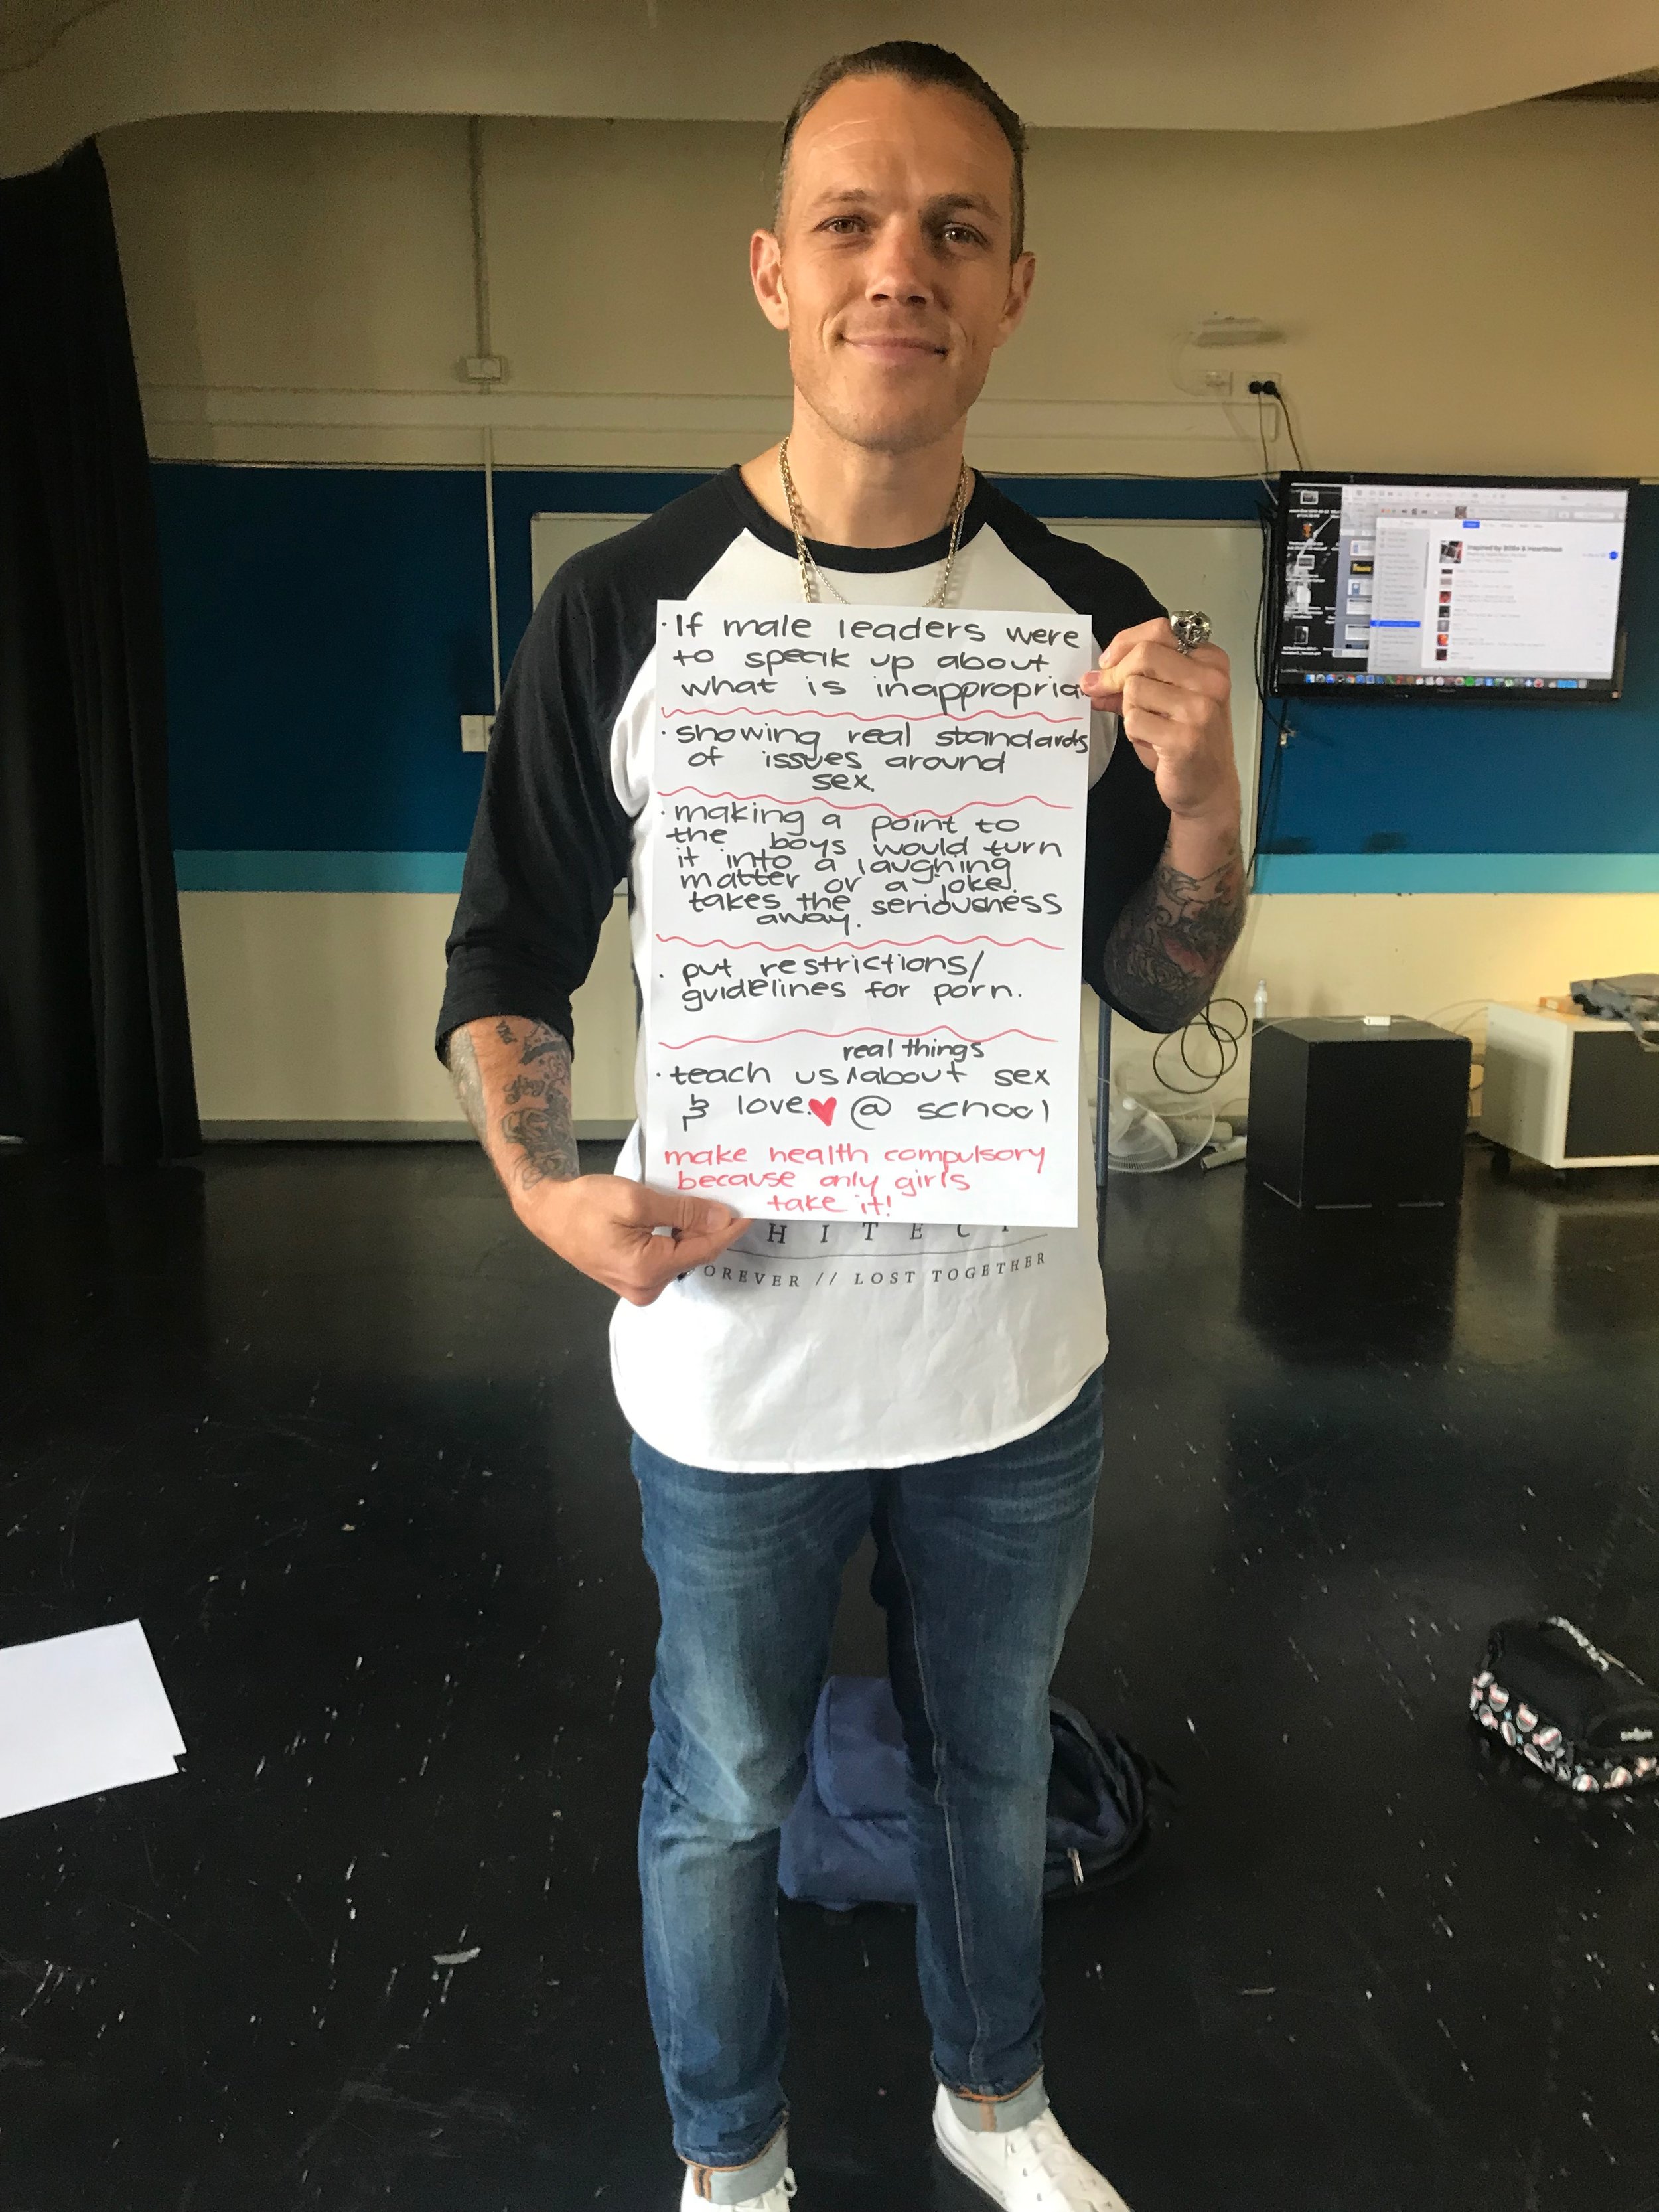 · If male leaders were
to speak up about
what is inappropria
· showing real standards
of issues around
sex.
· making a point to
the boys would turn
it into a laughing
matter or a joke.
takes the seriousness
away.
· put restrictions/
guidelines for porn.
real things
· teach us ^ about sex
& love. ♥ @ school
make health compulsory
because only girls
take it!
HITECT
OREVER // LOST TOGETHER
Inspired by Billie & Heartbreak